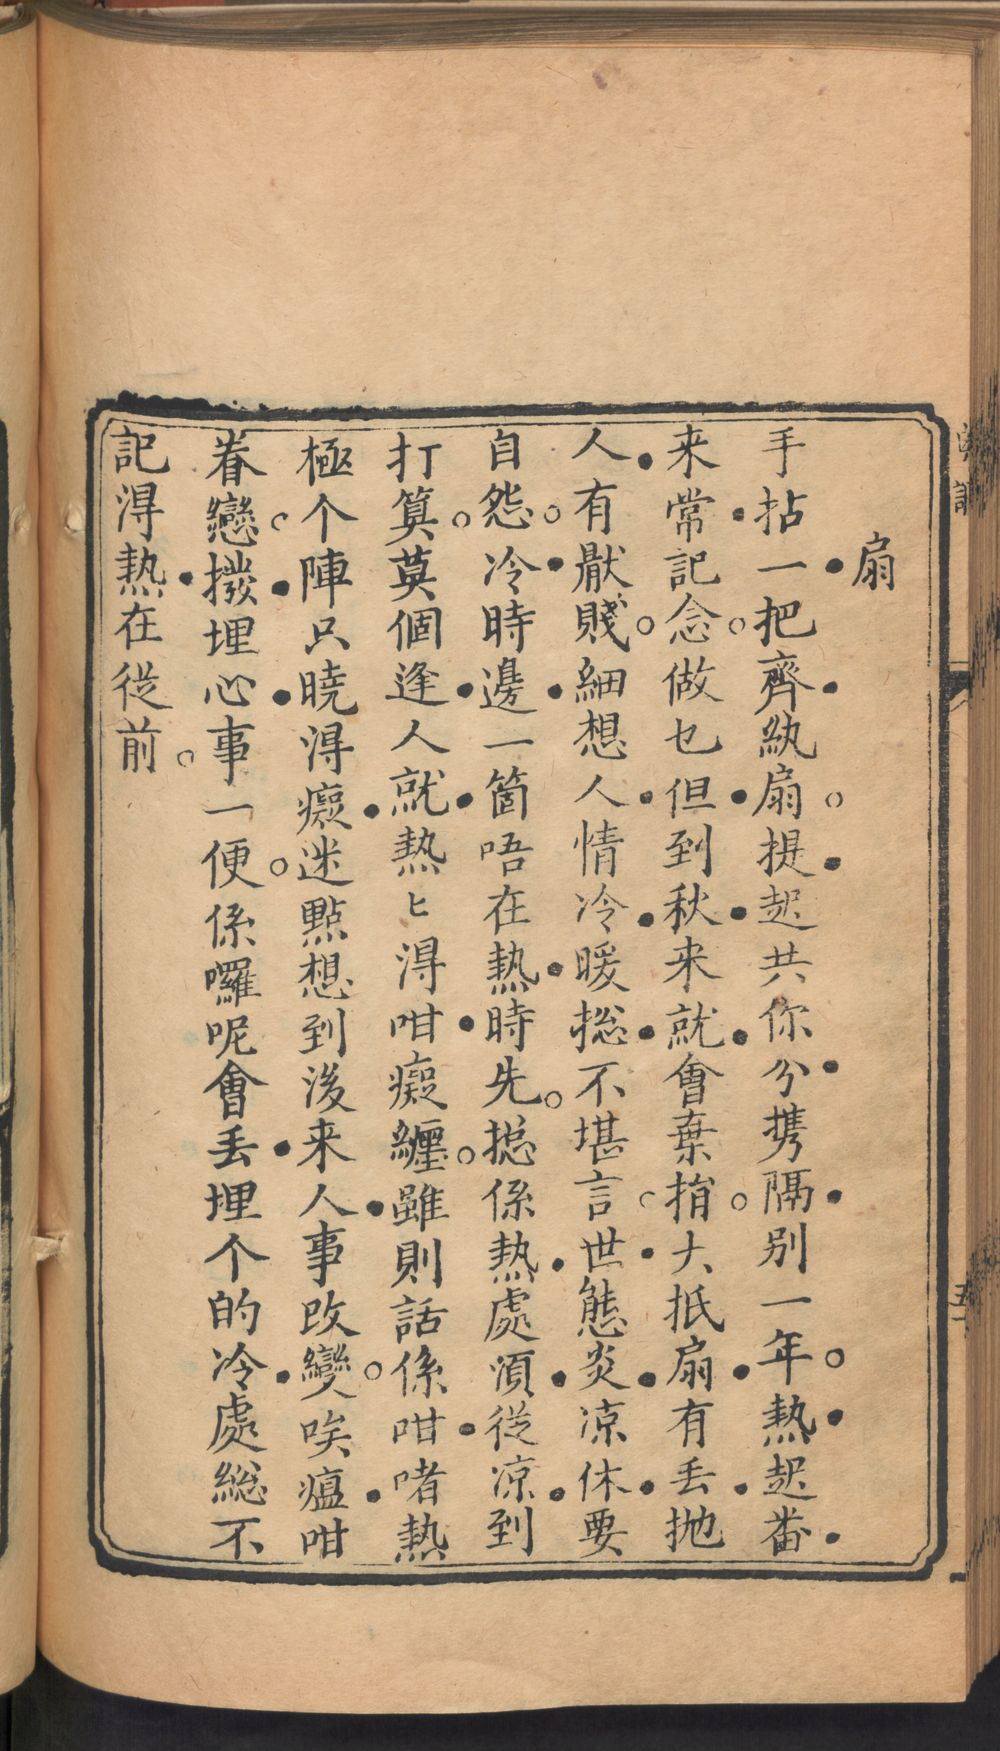 扇
手拈一把齊紈扇提起共你分携隔別一年熱起畨
来常記念做乜但到秋来就會棄捐大抵扇有丢抛
人有厭賤細想人情冷暖捴不堪言世態炎凉休要
自怨冷時邊一箇唔在熱時先捴係熱處湏從凉到
打算莫個逢人就熱匕得咁癡纏雖則話係咁啫熱
極个陣只曉得癡迷點想到後来人事改變唉瘟咁
眷戀撥埋心事一便係囉呢會丢埋个的冷處総不
記得熱在從前